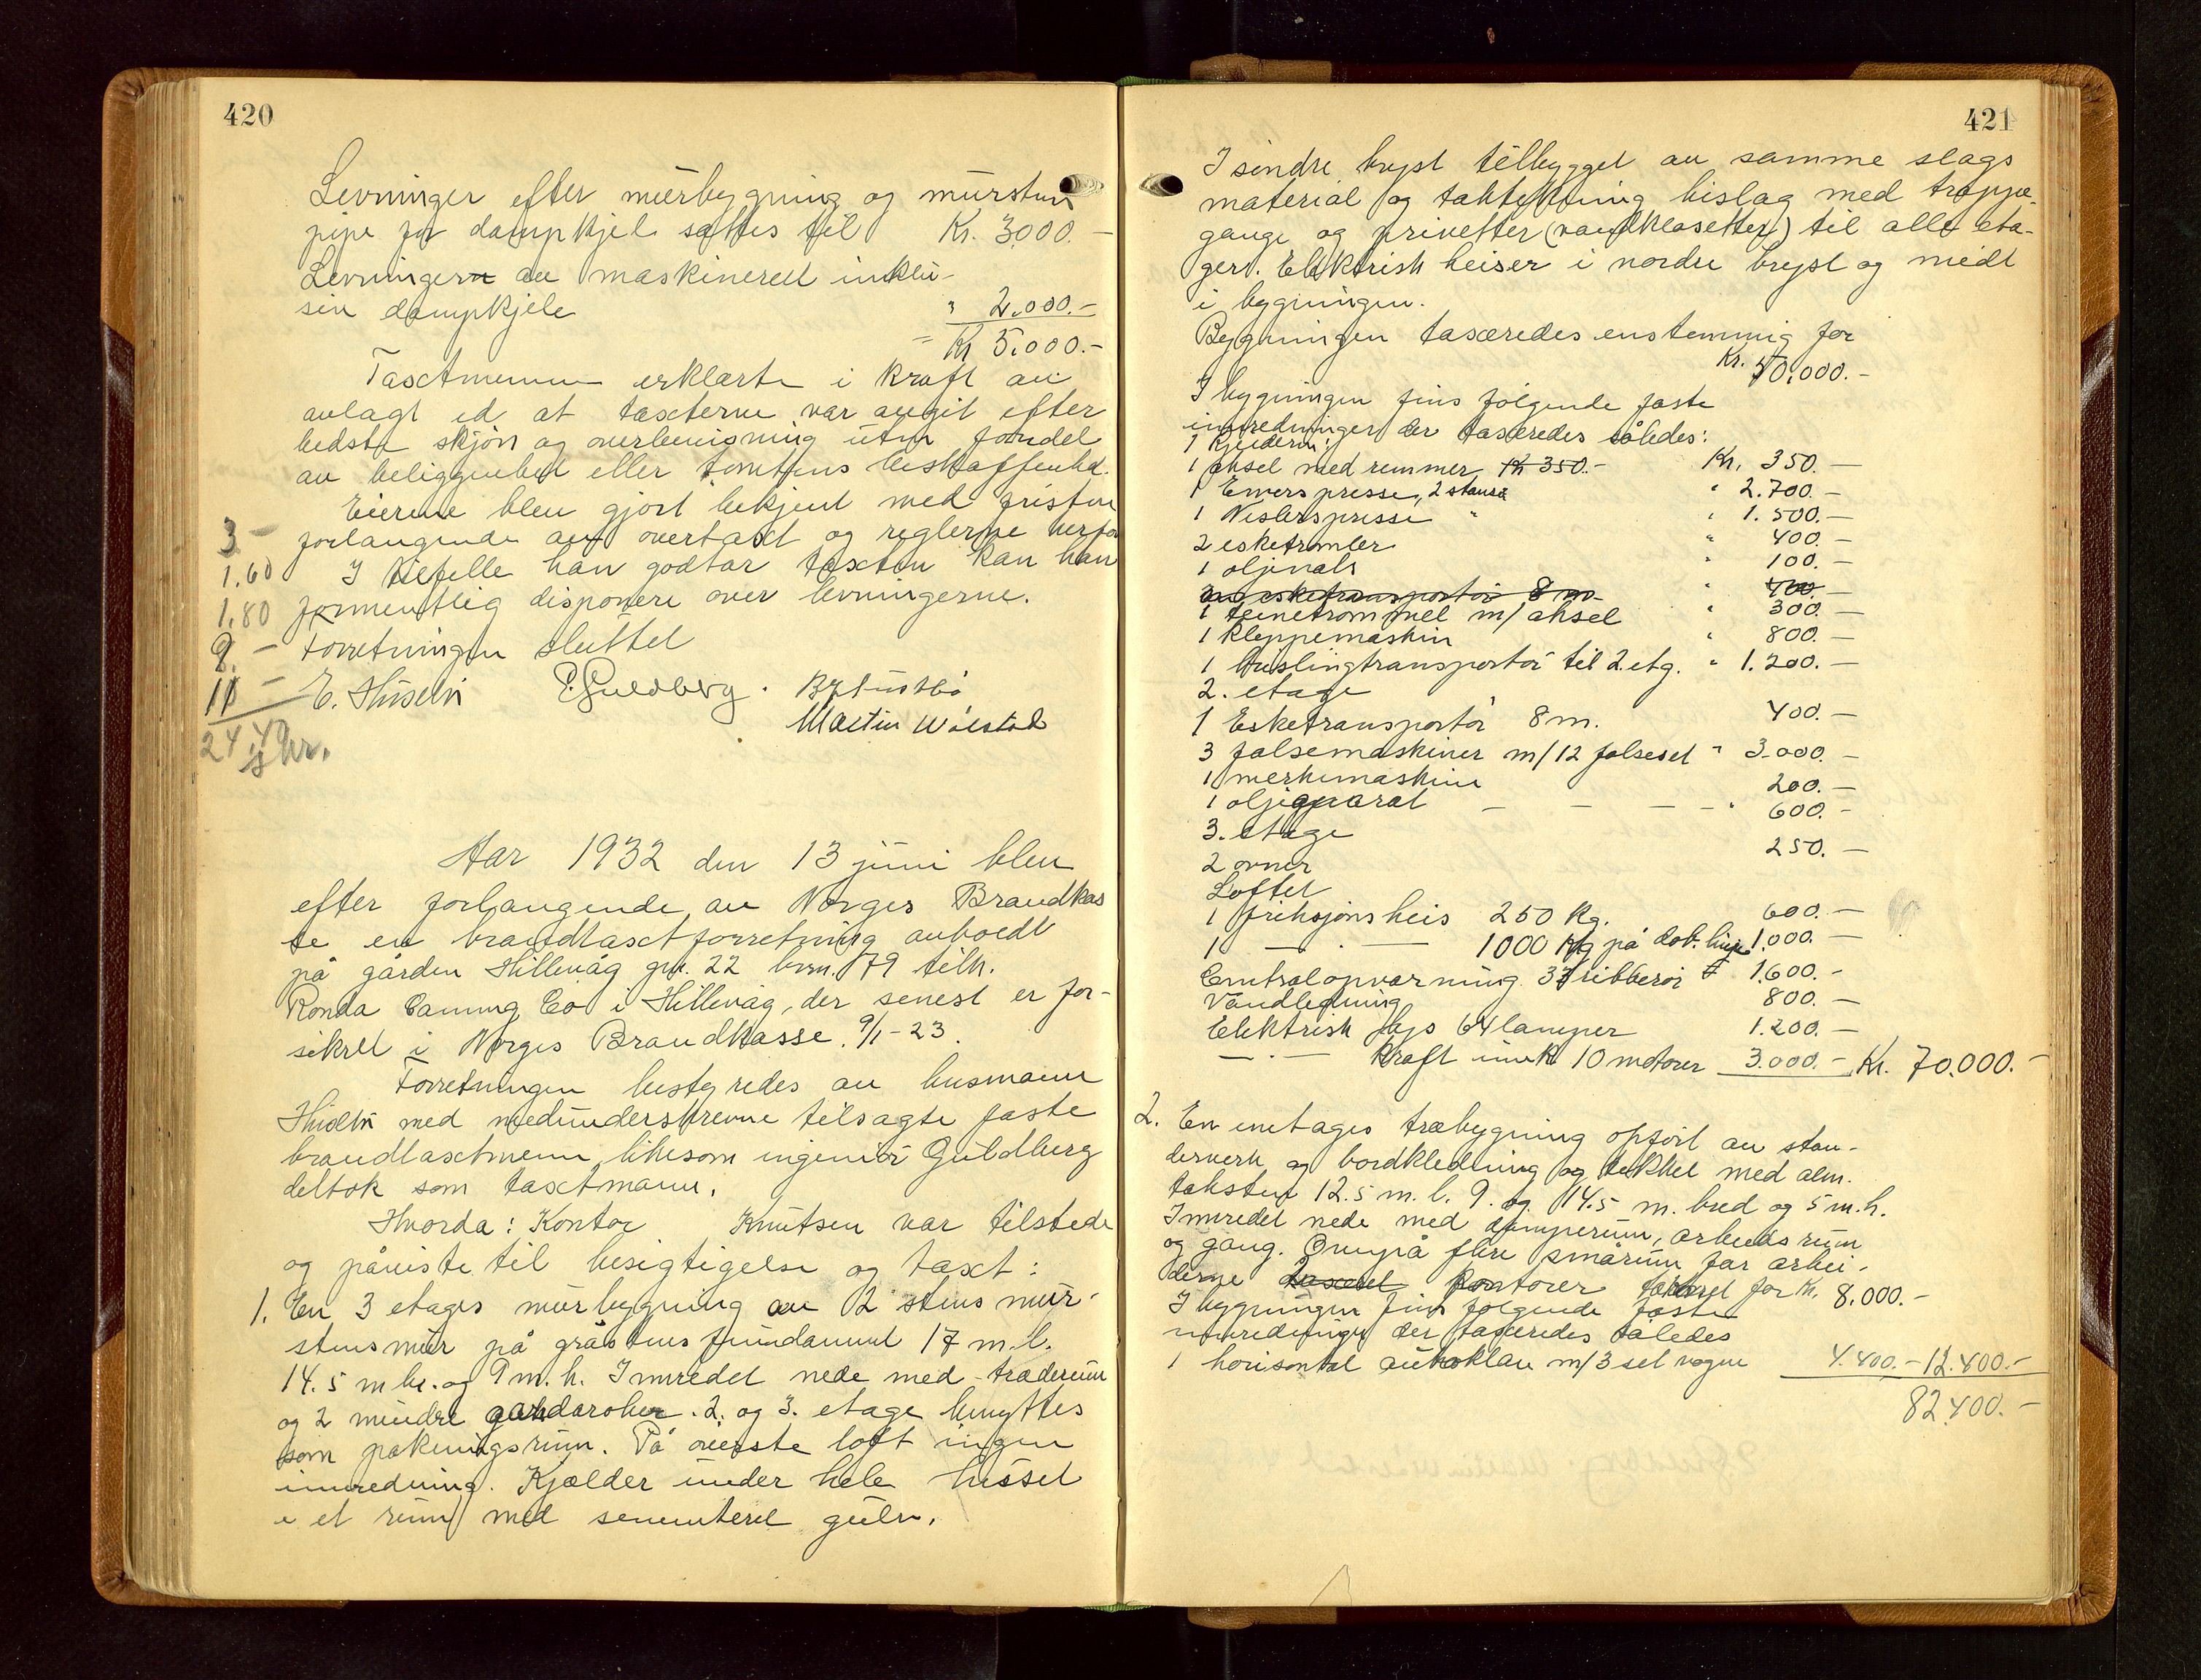 420
Levninger efter murbygning og mursten
pipe for dampkjel sættes til Kr. 3.000.-
Levningern av maskineriet inklu-
siv dampkjele " 2.000.-
= Kr 5.000.-
Taxtmennene erklærte i kraft av
avlagt ed at taxterne var avgit efter
bedste skjön og overbevisning uten fordel
av beliggenhet eller tomtens beskaffenhet.
Eierene blev gjort bekjent med fristen
3 - forlangende av overtaxt og reglerne herfor
1.60 I tilfelle han godtar taxten kan han
1.80 formentlig disponere over levningerne.
8. - Forretningen sluttet
11 - E. Husebö E. Guldberg. 
Martin Wölstad
24.40
Aar 1932 den 13 juni blev
efter forlangende av Norges Brandkas
se en brandtaxtforretning avholdt
på gården Hillevåg gn. 22 brn. 79 tilh.
Ronda Caning Co i Hillevåg, der senest er for-
sikret i Norges Brandkasse. 9/1-23.
Forretningen bestyredes av lensmann
Husebö med medunderskrevne tilsagte faste
brandtaxtmenn, likesom ingeniör Guldberg
deltok som taxtmann.
Hvorda: Kontor Knutsen var tilstede
og påviste til besigtigelse og taxt:
1. En 3 etages murbygning av 2 stens mur-
stensmur på gråstens fundament 17 m.l.
14.5 m br. og 9 m.h. Innredet nede med træderum
og 2 mindre gardarober. 2. og 3. etage benyttes
som pakningsrum. På øverste loft ingen
innredning. Kjælder under hele huset
i et rum med sementeret gulv.
421
I søndre bryst tilbygget av samme slags
material og taktekning bislag med trappe-
gange og privetter (vandklosetter) til alle eta-
ger. Elektrisk heiser i nordre bryst og midt
i bygningen.
Bygningen taxeredes enstemmig for
Kr. 50.000.-
I bygningen fins følgende faste
innredninger der taxeredes således:
1 Kjelderen:
1 aksel med remmer Kr 350.- Kr. 350.-
1 Emerspresse, 2 stansa " 2.700.-
1 Nislerspresse " " 1.500.-
2 esketromler " 400.-
1 oljevals " 100.-
esketransportör 8 m " 400.-
1 teinetrommel m/aksel " 300.-
1 kleppemaskin " 800.-
1 bruslingtransportör til 2. etg. " 1.200.-
2. etage
1 Esketransportör 8 m. 400.-
3 falsemaskiner m/12 falseset " 3.000.-
1 merkemaskin 200.-
1 oljeaparat - - - - " 600.-
3. etage
2 ovner 250.-
Loftet
1 friksjonsheis 250 kg. 600.-
1 -.- 1000 kg på dob. linje 1.000.-
Centralopvarming 37 ribberör 1.600.-
Vandledning 800.-
Elektrisk lys 64 lamper 1.200.-
-.- kraft innk 10 motorer 3.000.- Kr. 70.000.-
2. En enetages træbygning opført av sten-
derverk og bordkledning og tekket med alm.
taksten 12.5 m.l. 9. og 14.5 m. bred og 5 m.h.
Innredet nede med damperum, arbeidsrum
og gang. Ovenpå flere smårum for arbei-
derne taxeret kontorer taxeret for Kr. 8.000.-
I bygningen fins følgende faste
innredninger der taxeredes således
1 horisontal autoklav m/3 set vogne 4.400.- 12.400.-
82.400.-